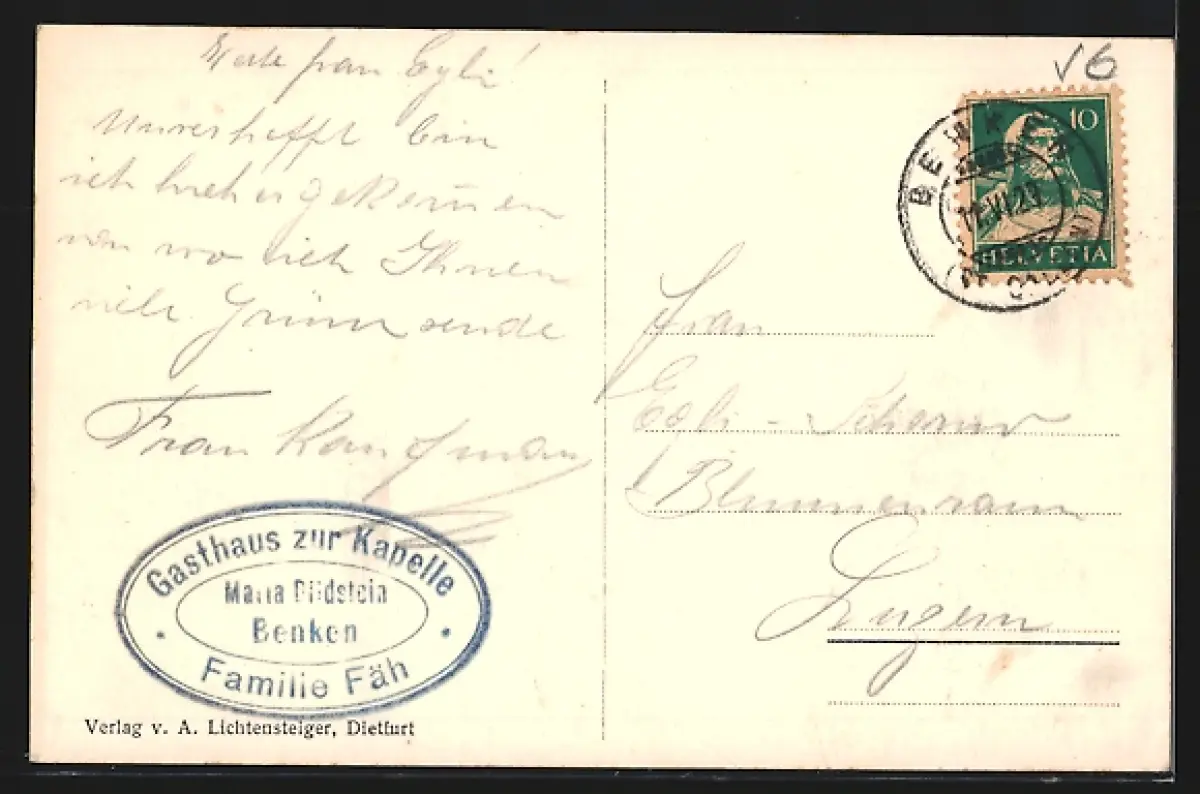 Werte Frau Egli!
Unverhofft bin
ich hieher gekom̄en
von wo ich Ihnen
viele Grüsse sende
Frau Kaufman
Gasthaus zur Kapelle
Maria Bildstein
Benken
Familie Fäh
Verlag v. A. Lichtensteiger, Dietfurt
V6
10
HELVETIA
BENKEN
VI.29
Frau
Egli -
Luzern